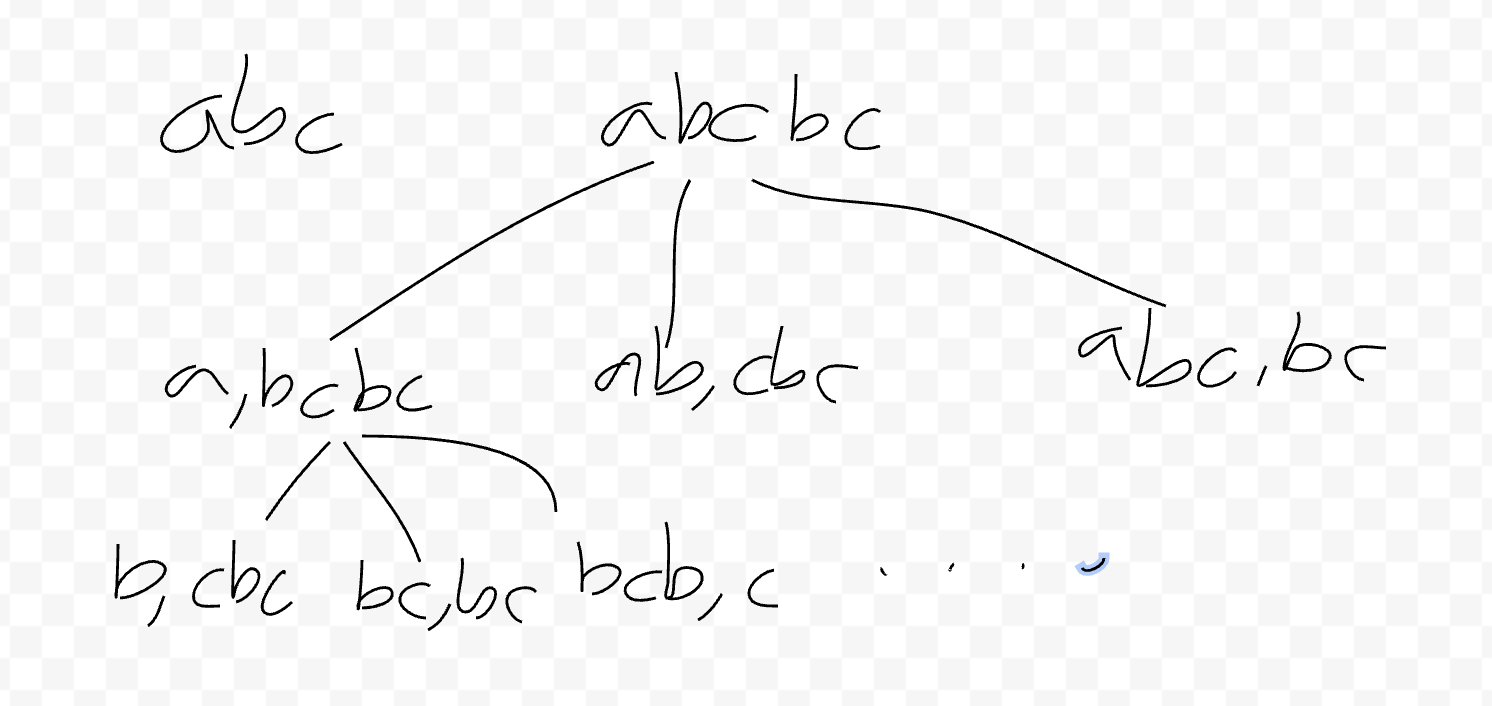 abc abcbc
a,bcbc ab,cbc abc,bc
b,cbc bc,bc bcb,c . . .